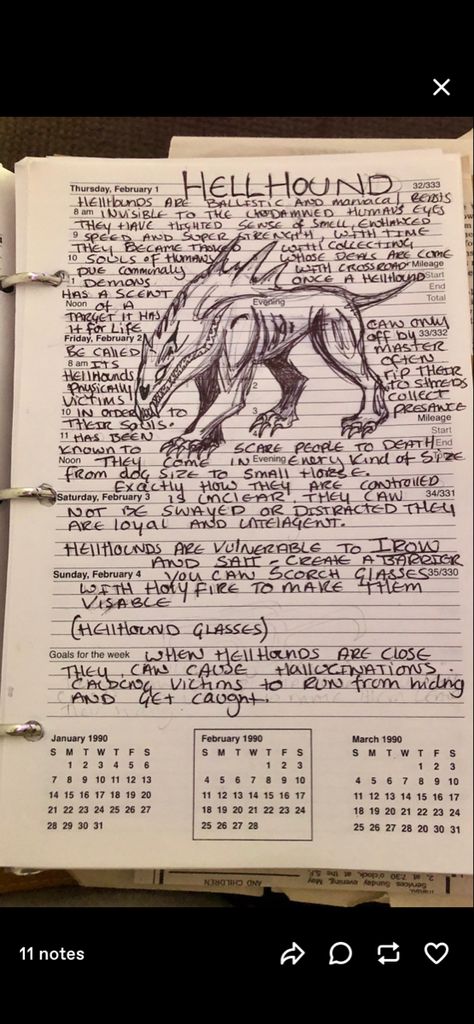 Thursday, February 1 HELLHOUND 32/333
HELLHOUNDS ARE BALLISTIC AND maniacal BEASTS
8 am INVISIBLE TO THE HUMANS EYES
THEY HAVE HIGHTED SENSE OF SMELL, ENHANCED
9 SPEED AND SUPER STRENGTH, WITH TIME
THEY BECAME TASKED WITH COLLECTING
10 SOULS OF HUMANS WHOSE DEALS ARE COME
DUE WITH CROSSROAD Mileage
DEMONS. ONCE A HELLHOUND Start
End
HAS A SCENT Total
Noon OF A Evening
TARGET IT HAS
it FOR LIFE CAN ONLY
Friday, February 2 33/332
BE CALLED off BY MASTER
8 am ITS OFTEN
HELLHOUNDS RIP THEIR
PHYSICALLY TO SHREDS
VICTIMS 2 COLLECT
10 IN ORDER TO 3 PRESANCE
THEIR SOULS. Mileage
Start
11 HAS BEEN
KNOWN TO SCARE PEOPLE TO DEATH End
Noon THEY COME IN Evening EVERY KIND OF SIZE
FROM dog SIZE TO SMALL HORSE.
EXACTLY HOW THEY ARE CONTROLLED
Saturday, February 3 IS UNCLEAR, THEY CAN 34/331
NOT BE SWAYED OR DISTRACTED THEY
ARE LOYAL AND INTELAGENT.
HELLHOUNDS ARE VULNERABLE TO IRON
AND SALT - CREATE A BARRIER
Sunday, February 4 YOU CAN SCORCH GLASSES 35/330
WITH HOLY FIRE TO MAKE THEM
VISABLE
(HELLHOUND GLASSES)
Goals for the week WHEN HELLHOUNDS ARE CLOSE
THEY CAN CAUSE HALLUCINATIONS.
CAUSING VICTIMS to RUN from hiding
AND GET CAUGHT.
January 1990 February 1990 March 1990
S M T W T F S S M T W T F S S M T W T F S
1 2 3 4 5 6 1 2 3 1 2 3
7 8 9 10 11 12 13 4 5 6 7 8 9 10 4 5 6 7 8 9 10
14 15 16 17 18 19 20 11 12 13 14 15 16 17 11 12 13 14 15 16 17
21 22 23 24 25 26 27 18 19 20 21 22 23 24 18 19 20 21 22 23 24
28 29 30 31 25 26 27 28 25 26 27 28 29 30 31
AND CHILDREN
Services Sunday evening, May
2, at 7:30 o'clock, at the S.F.
11 notes